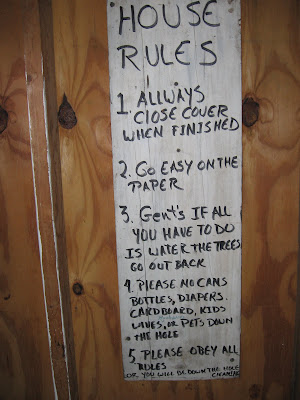 HOUSE
RULES
1. ALLWAYS
CLOSE COVER
WHEN FINISHED
2. GO EASY ON THE
PAPER
3. Gent's IF ALL
YOU HAVE TO DO
IS WATER THE TREES
GO OUT BACK
4. PLEASE NO CANS
BOTTLES, DIAPERS.
CARDBOARD, KIDS
WIVES, OR PETS DOWN
THE HOLE
5. PLEASE OBEY ALL
RULES
OR YOU WILL BE DOWN THE HOLE
CLEANING